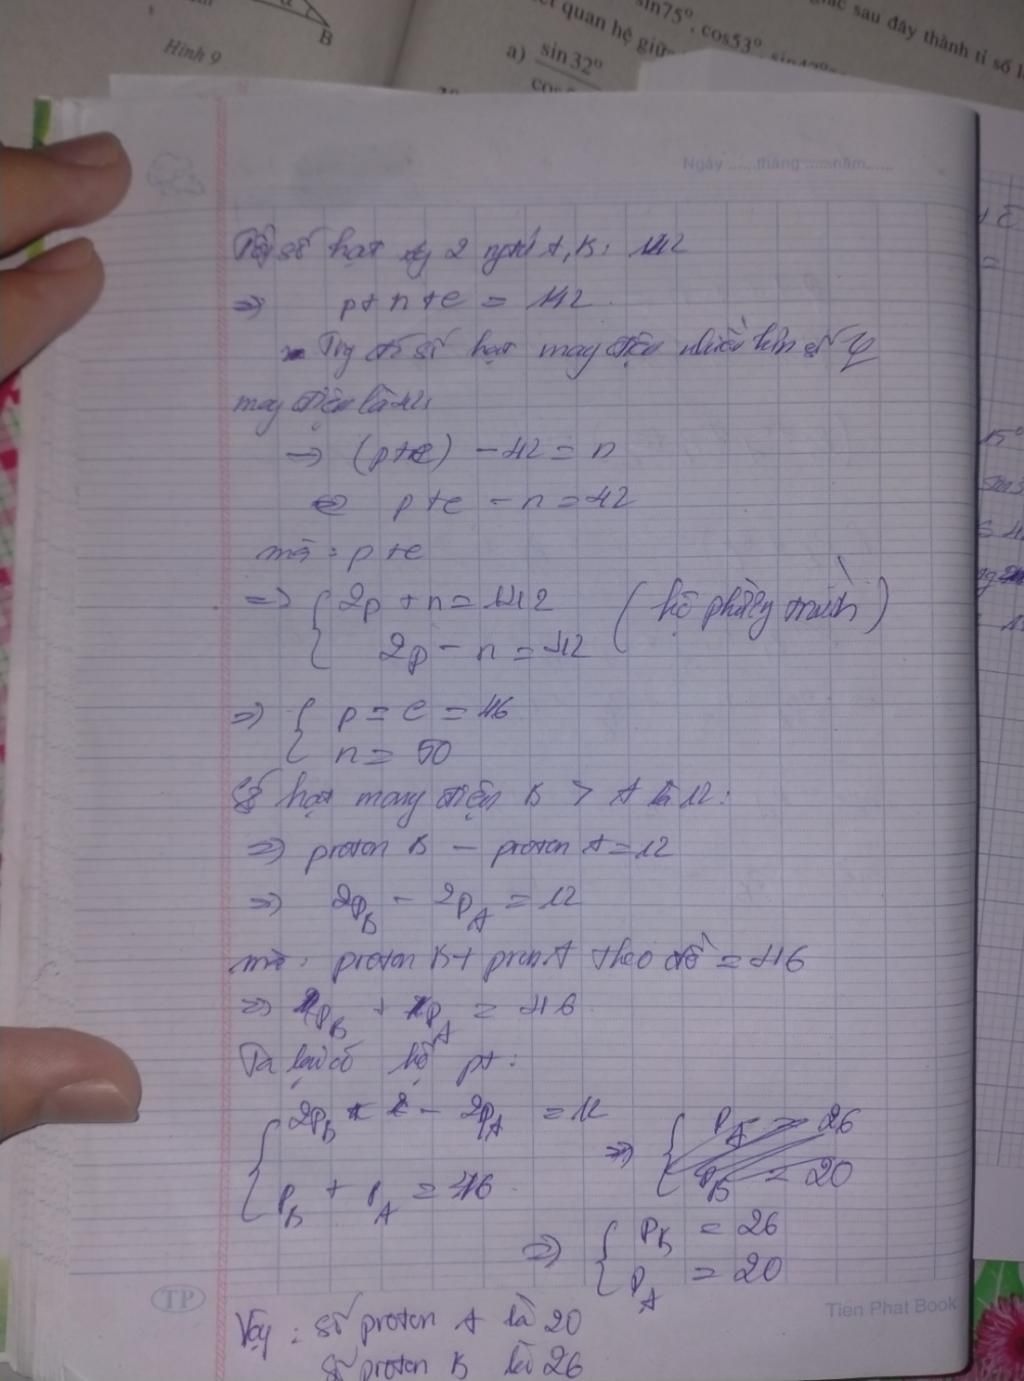 Hình 9
B
quan hệ giữ
a) sin 32°
sin75°, cos53°
sau đây thành tỉ số l
Ngày ...... tháng ...... năm ......
số hạt 2 A, B: 142
=> p + n + e = 142
số hạt mang điện nhiều hơn số
mang điện là 42
=> (p+e) - 42 = n
<=> p + e - n = 42
mà: p + e
=> { 2p + n = 142 (hệ phương trình)
2p - n = 42
=> { p = e = 46
n = 50
Số hạt mang điện B > A là 12:
=> proton B - proton A = 12
=> 2P_B - 2P_A = 12
mà: proton B + A theo đề = 46
=> P_B + P_A = 46
Ta lại có hệ pt:
{ 2P_B - 2P_A = 12
P_B + P_A = 46
=> { P_A = 26
P_B = 20
=> { P_B = 26
P_A = 20
TP
Tien Phat Book
Vậy: số proton A là 20
số proton B là 26